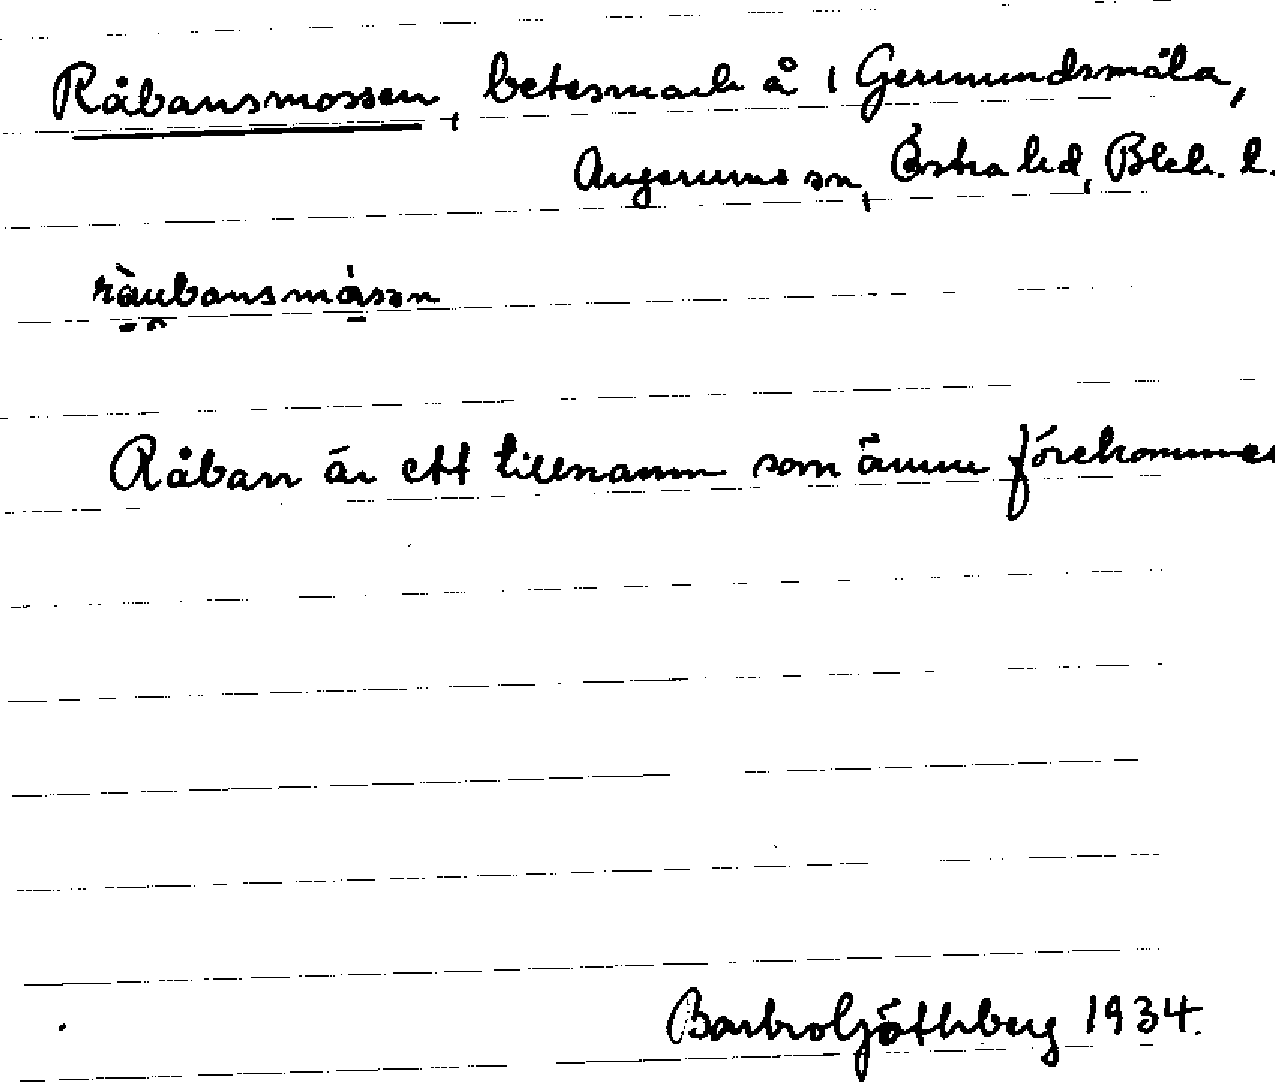 Råbansmossen, betesmark å i Germundsmåla,
Augerums sn, Östra hd, Blek. l.
ràubansmåsən
Råban är ett tillnamn som ännu förekommer
Barbro Göthberg 1934.